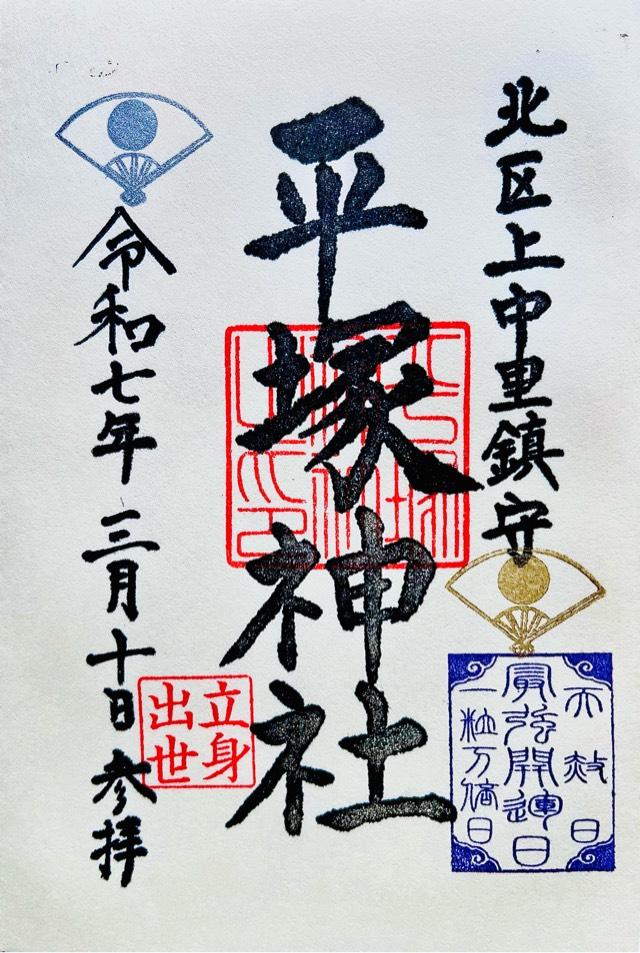 北区上中里鎮守
天赦日
最強開運日
一粒万倍日
平塚神社
立身
出世
令和七年 三月十日 参拝